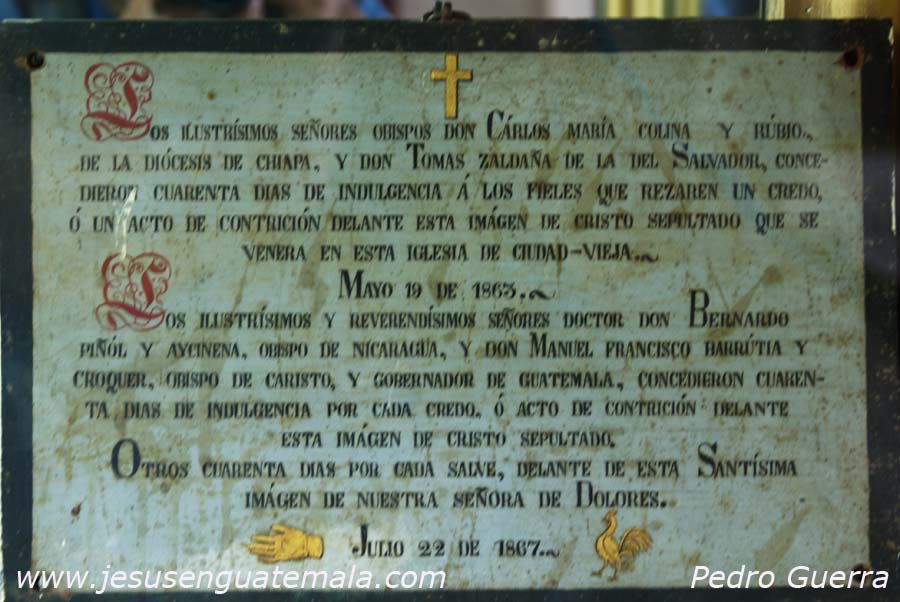 LOS ILUSTRÍSIMOS SEÑORES OBISPOS DON CÁRLOS MARÍA COLINA Y RÚBIO.,
DE LA DIÓCESIS DE CHIAPA, Y DON TOMAS ZALDAÑA DE LA DEL SALVADOR, CONCE-
DIERON CUARENTA DIAS DE INDULGENCIA Á LOS FIELES QUE REZAREN UN CREDO,
Ó UN ACTO DE CONTRICIÓN DELANTE ESTA IMÁGEN DE CRISTO SEPULTADO QUE SE
VENERA EN ESTA IGLESIA DE CIUDAD-VIEJA.
MAYO 19 DE 1863.
LOS ILUSTRÍSIMOS Y REVERENDÍSIMOS SEÑORES DOCTOR DON BERNARDO
PIÑÓL Y AYCINENA, OBISPO DE NICARAGUA, Y DON MANUEL FRANCISCO BARRÚTIA Y
CROQUER, OBISPO DE CARISTO, Y GOBERNADOR DE GUATEMALA, CONCEDIERON CUAREN-
TA DIAS DE INDULGENCIA POR CADA CREDO, Ó ACTO DE CONTRICIÓN DELANTE
ESTA IMÁGEN DE CRISTO SEPULTADO.
OTROS CUARENTA DIAS POR CADA SALVE, DELANTE DE ESTA SANTÍSIMA
IMÁGEN DE NUESTRA SEÑORA DE DOLORES.
JULIO 22 DE 1867.
www.jesusenguatemala.com Pedro Guerra